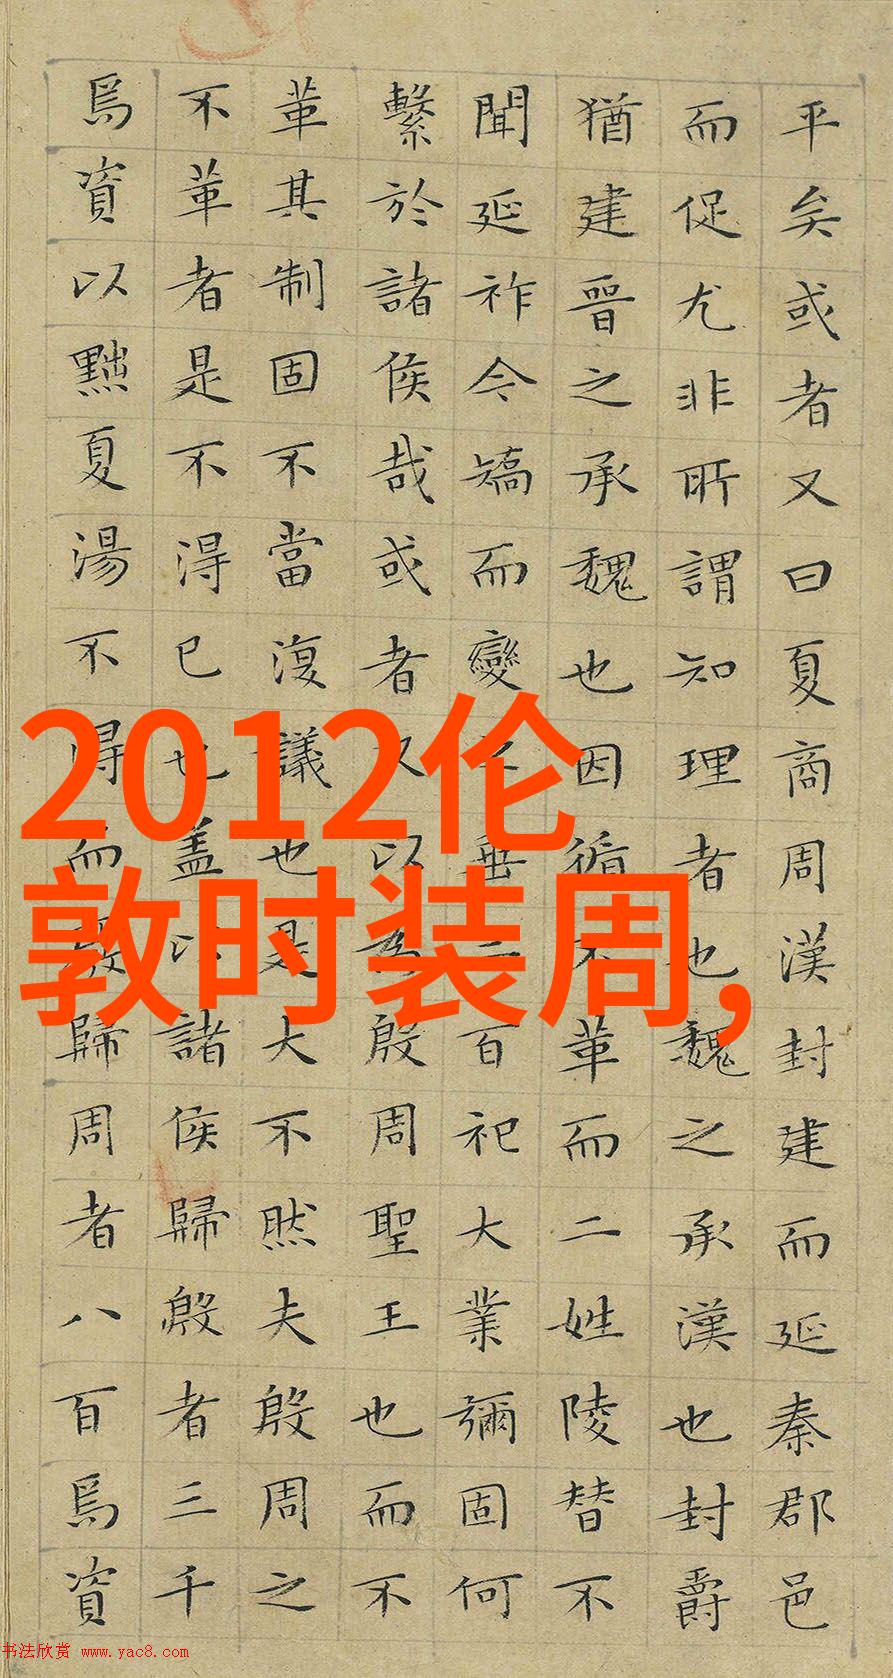 平矣或者又曰夏商周漢封建而延秦郡邑
而促尤非所謂知理者也魏之承漢也封爵
猶建晉之承魏也因循不革而二姓陵替不
聞延祚今矯而變之垂二百祀大業彌固何
繫於諸侯哉或者又以為殷周聖王也而不
革其制固不當復議也是大不然夫殷周之
不革者是不得已也盖以諸侯歸殷者三千
焉資以黜夏湯不得而廢歸周者八百焉資
2012伦
敦时装周,
书法欣赏 www.yac8.com